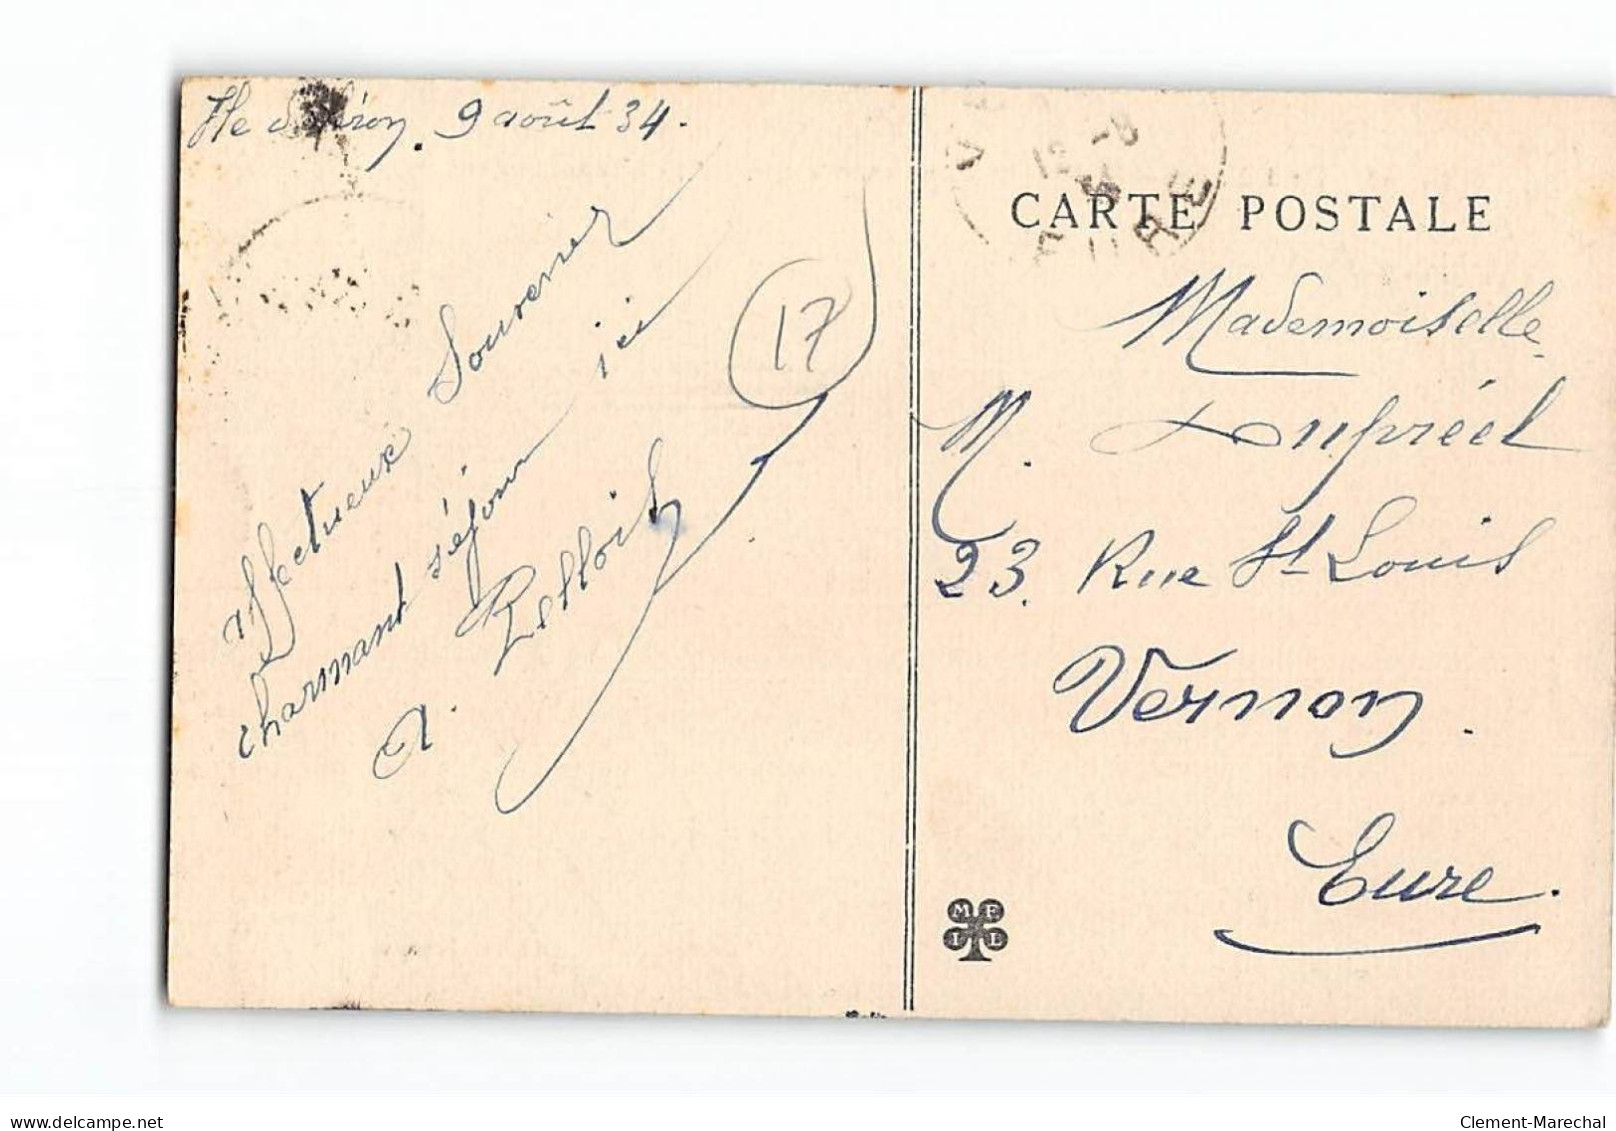 Ile d'Oléron. 9 août 34.
affectueux souvenir
charmant séjour ici
A.
17
CARTE POSTALE
EURE
Mademoiselle
M. Dupréel
23. Rue St Louis
Vernon.
Eure.
M F
I L
Clement-Marechal